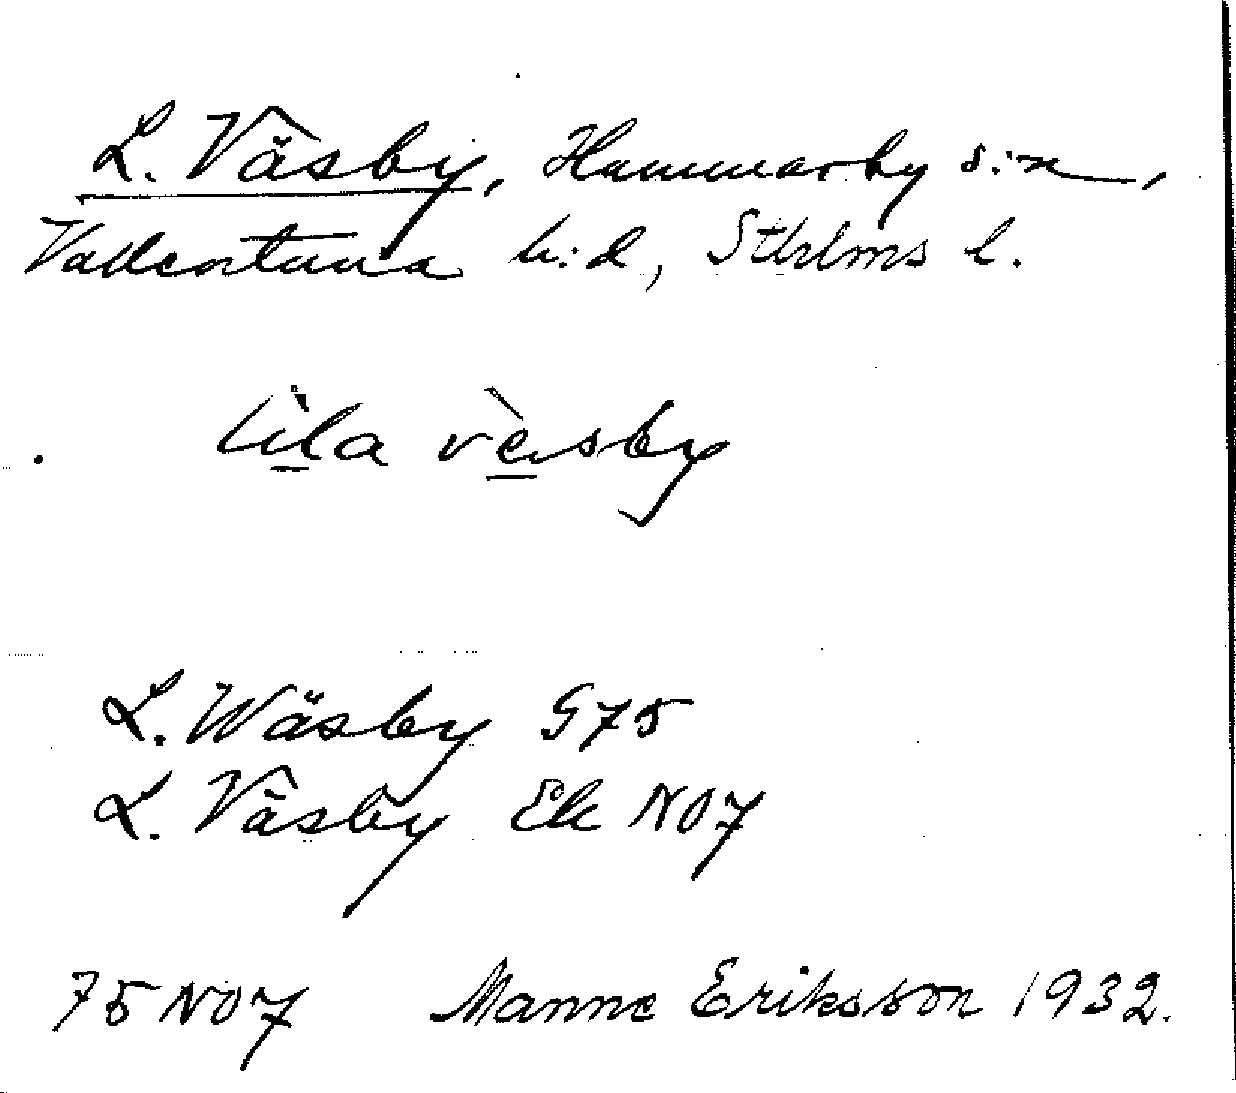 L. Väsby, Hammarby s:n,
Vallentuna h:d, Sthlms l.
lìla vèsby
L. Wäsby G75
L. Väsby Ek NO7
75 NO7 Manne Eriksson 1932.